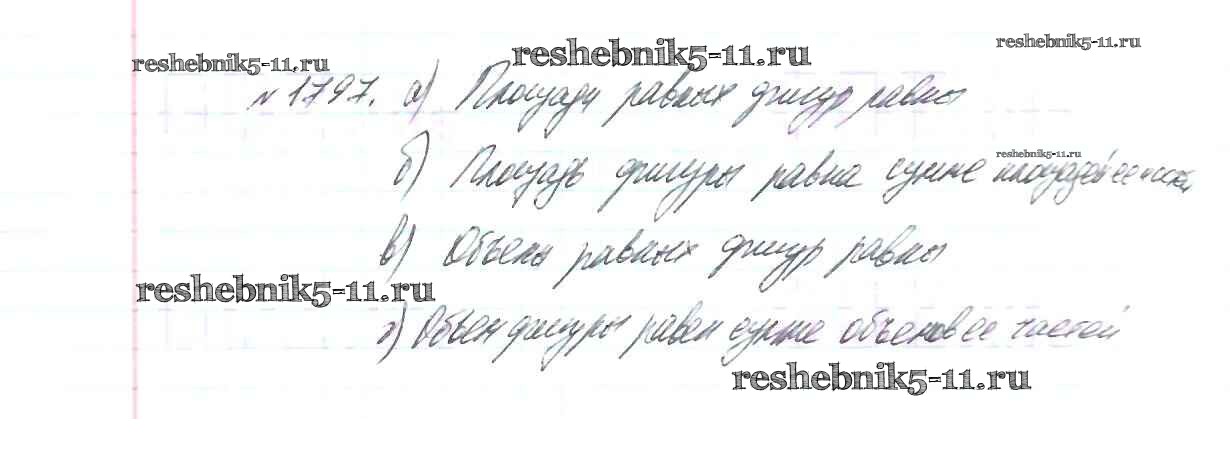 reshebnik5-11.ru
reshebnik5-11.ru
reshebnik5-11.ru
№ 1797. а) Площади равных фигур равны
reshebnik5-11.ru
б) Площадь фигуры равна сумме площадей ее частей
в) Объемы равных фигур равны
reshebnik5-11.ru
г) Объем фигуры равен сумме объемов ее частей
reshebnik5-11.ru